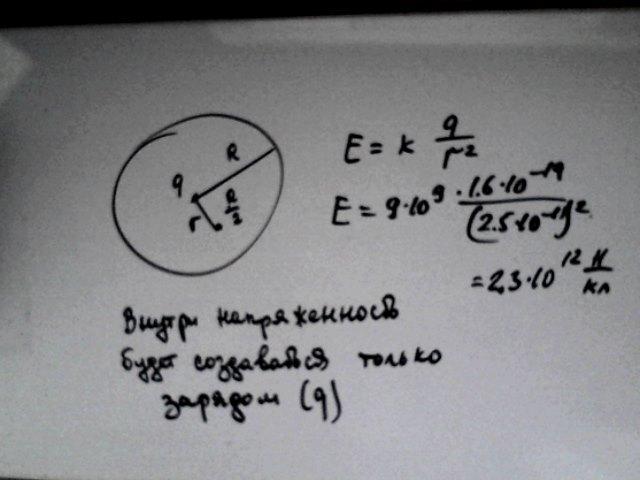 R
q
r
R/2
E = k q/r²
E = 9·10⁹ · 1.6·10⁻¹⁹/(2.5·10⁻¹¹)²
= 2,3·10¹² Н/кл
Внутри напряженность
будет создаваться только
зарядом (q)